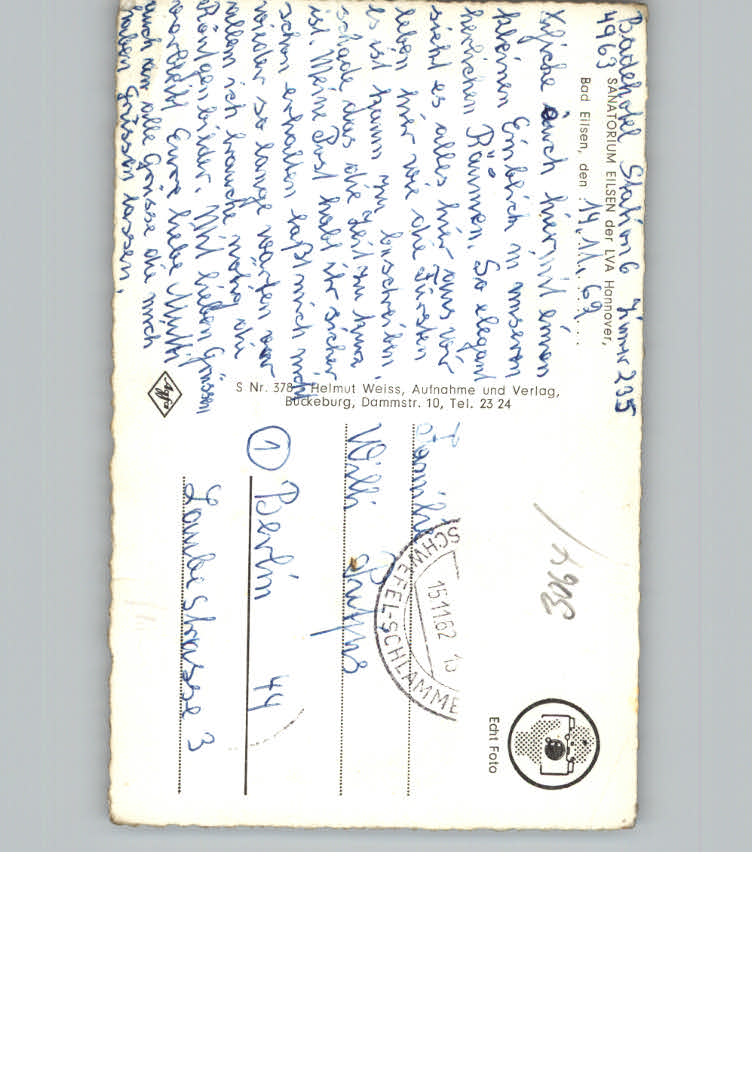 Badehotel Station 6 Zimmer 235
4963
SANATORIUM EILSEN der LVA Hannover,
Bad Eilsen, den 14.11.62
Euch hiermit einen
kleinen Einblick in unseren
herlichen Räumen. So elegant
sieht es alles hier aus wir
leben hier wie die Fürsten
es ist kaum zu beschreiben,
schade das die Zeit zu kurz
ist. Meine Post habt ihr sicher
schon erhalten laßt mich nicht
wieder so lange warten vor
allem ich brauche nötig die
Röntgenbilder. Mit lieben Grüssen
verbleibt Eure liebe Mutti
auch an alle Grüsse die mich
haben Grüssen lassen.
S Nr. 378 Helmut Weiss, Aufnahme und Verlag,
Bückeburg, Dammstr. 10, Tel. 23 24
Agfa
Familie
Willi
1 Berlin 44
Strasse 3
SCHWEFEL-SCHLAMM
15.11.62
Echt Foto